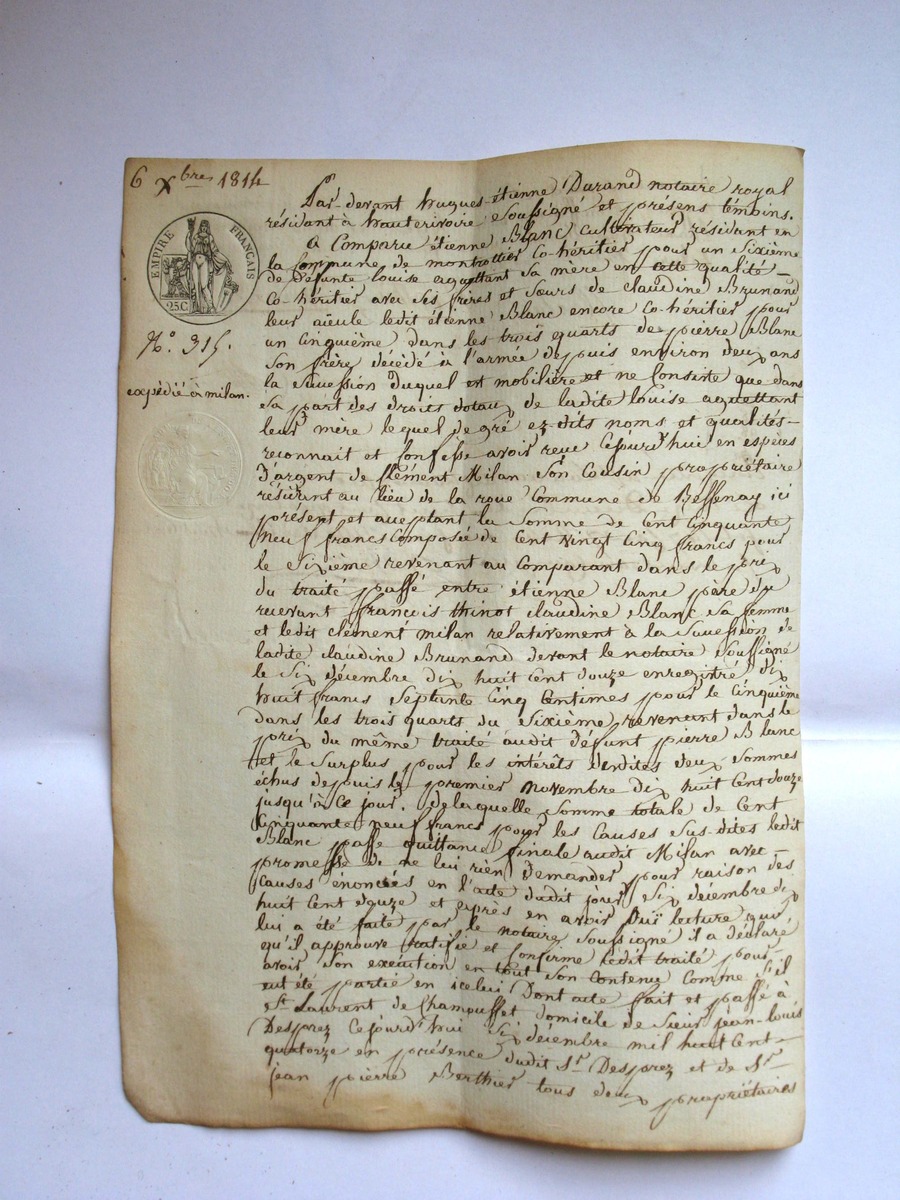 6 Xbre 1814
EMPIRE FRANÇAIS
25C
N°. 315.
expédié à milan.
Par-devant hugues-étienne Durand notaire royal
résidant à hauterivoire soussigné et présens témoins.
a Comparu étienne Blanc cultivateur résidant en
la Commune de montrottier Co-héritier pour un Sixième
de défunte louise aguettant Sa mère en cette qualité
Co-héritier avec Ses frères et Sœurs de claudine Brunand
leur aïeule ledit étienne Blanc encore Co-héritier pour
un Cinquième dans les trois quarts de pierre Blanc
Son frère décédé à l'armée depuis environ deux ans
la Succession duquel est mobilière et ne Consiste que dans
Sa part des droits dotaux de ladite louise aguettant
leur mère lequel de gré ez-dits noms et qualités
reconnait et Confesse avoir reçu Cejourd'hui en espèces
d'argent de Clément Milan Son Cousin propriétaire
résidant au lieu de la roue Commune de Bessenay ici
présent et acceptant la Somme de Cent Cinquante
neuf francs Composée de Cent Vingt Cinq francs pour
le Sixième revenant au Comparant dans le prix
du traité passé entre étienne Blanc père du
recevant françois thinot claudine Blanc Sa femme
et ledit clément milan relativement à la Succession de
ladite claudine Brunand devant le notaire Soussigné
le Six décembre dix huit Cent douze enregistré dix
huit francs Septante Cinq Centimes pour le Cinquième
dans les trois quarts du Sixième revenant dans le
prix du même traité audit défunt pierre Blanc
et le Surplus pour les intérêts desdites deux Sommes
échus depuis le premier novembre dix huit Cent douze
jusqu'à Ce jour. de laquelle Somme totale de Cent
Cinquante neuf francs pour les Causes Sus-dites ledit
Blanc passe quittance finale audit Milan avec
promesse de ne lui rien demander pour raison des
Causes énoncées en l'acte dudit jour Six décembre dix
huit Cent douze et après en avoir ouï lecture qui
lui a été faite par le notaire Soussigné il a déclaré
qu'il approuve ratifie et Confirme ledit traité pour
avoir Son exécution en tout Son Contenu Comme S'il
eut été partie en icelui Dont acte fait et passé à
St. Laurent de Chamousset domicile de Sieur jean-louis
Desprez Cejourd'hui Six décembre mil huit Cent
quatorze en présence dudit Sr. Desprez et de Sr.
jean pierre Berthier tous deux propriétaires